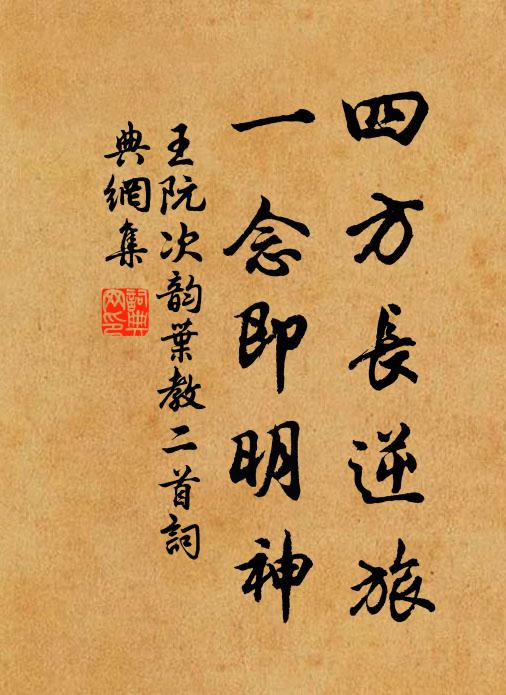 四方長逆旅
一念即明神
王阮次韵葉教二首詞
典網集
詞典
网印